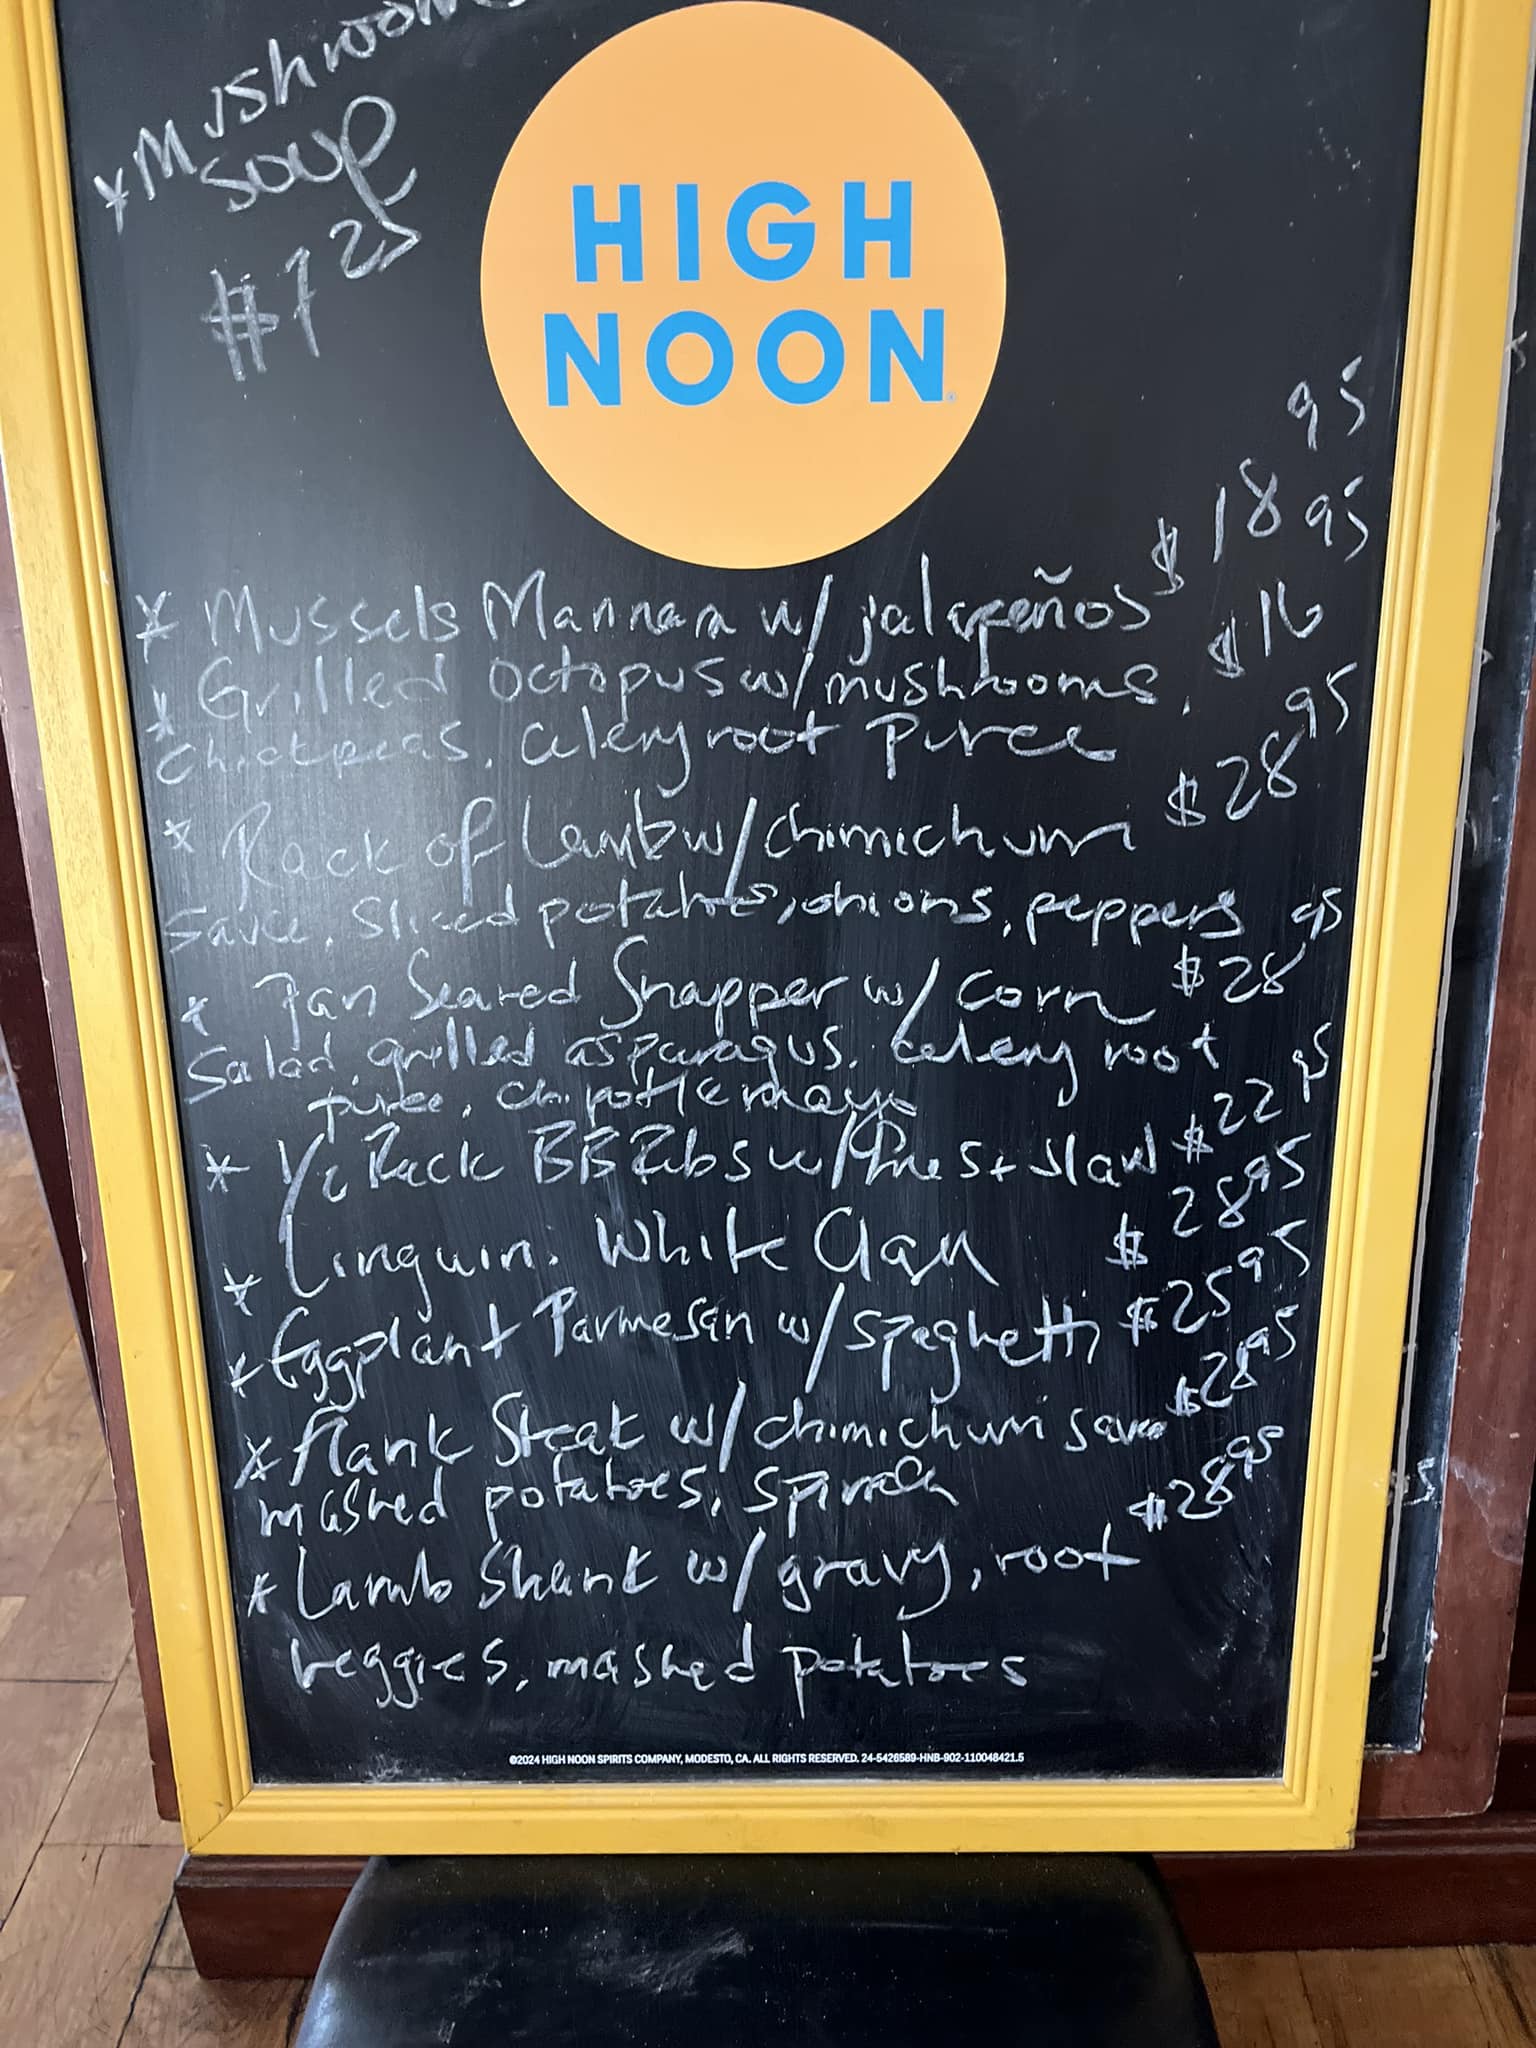 *Mushroom
soup
$7 25
HIGH
NOON
* Mussels Mannara w/ jalapeños $18 95
* Grilled Octopus w/ mushrooms, $16 95
chickpeas, celery root Puree
* Rack of Lamb w/ chimichurri $28 95
sauce, sliced potatoes, onions, peppers
* Pan Seared Snapper w/ corn $28 95
Salad, grilled asparagus, celery root
puree, chipotle mayo
* 1/2 Rack BB Ribs w/ slaw $22 95
* Linguini White Clam $28 95
* Eggplant Parmesan w/ spaghetti $25 95
* Flank Steak w/ chimichurri sauce $28 95
mashed potatoes, spinach
* Lamb Shank w/ gravy, root $28 95
veggies, mashed potatoes
©2024 HIGH NOON SPIRITS COMPANY, MODESTO, CA. ALL RIGHTS RESERVED. 24-5426589-HNB-902-110048421.5